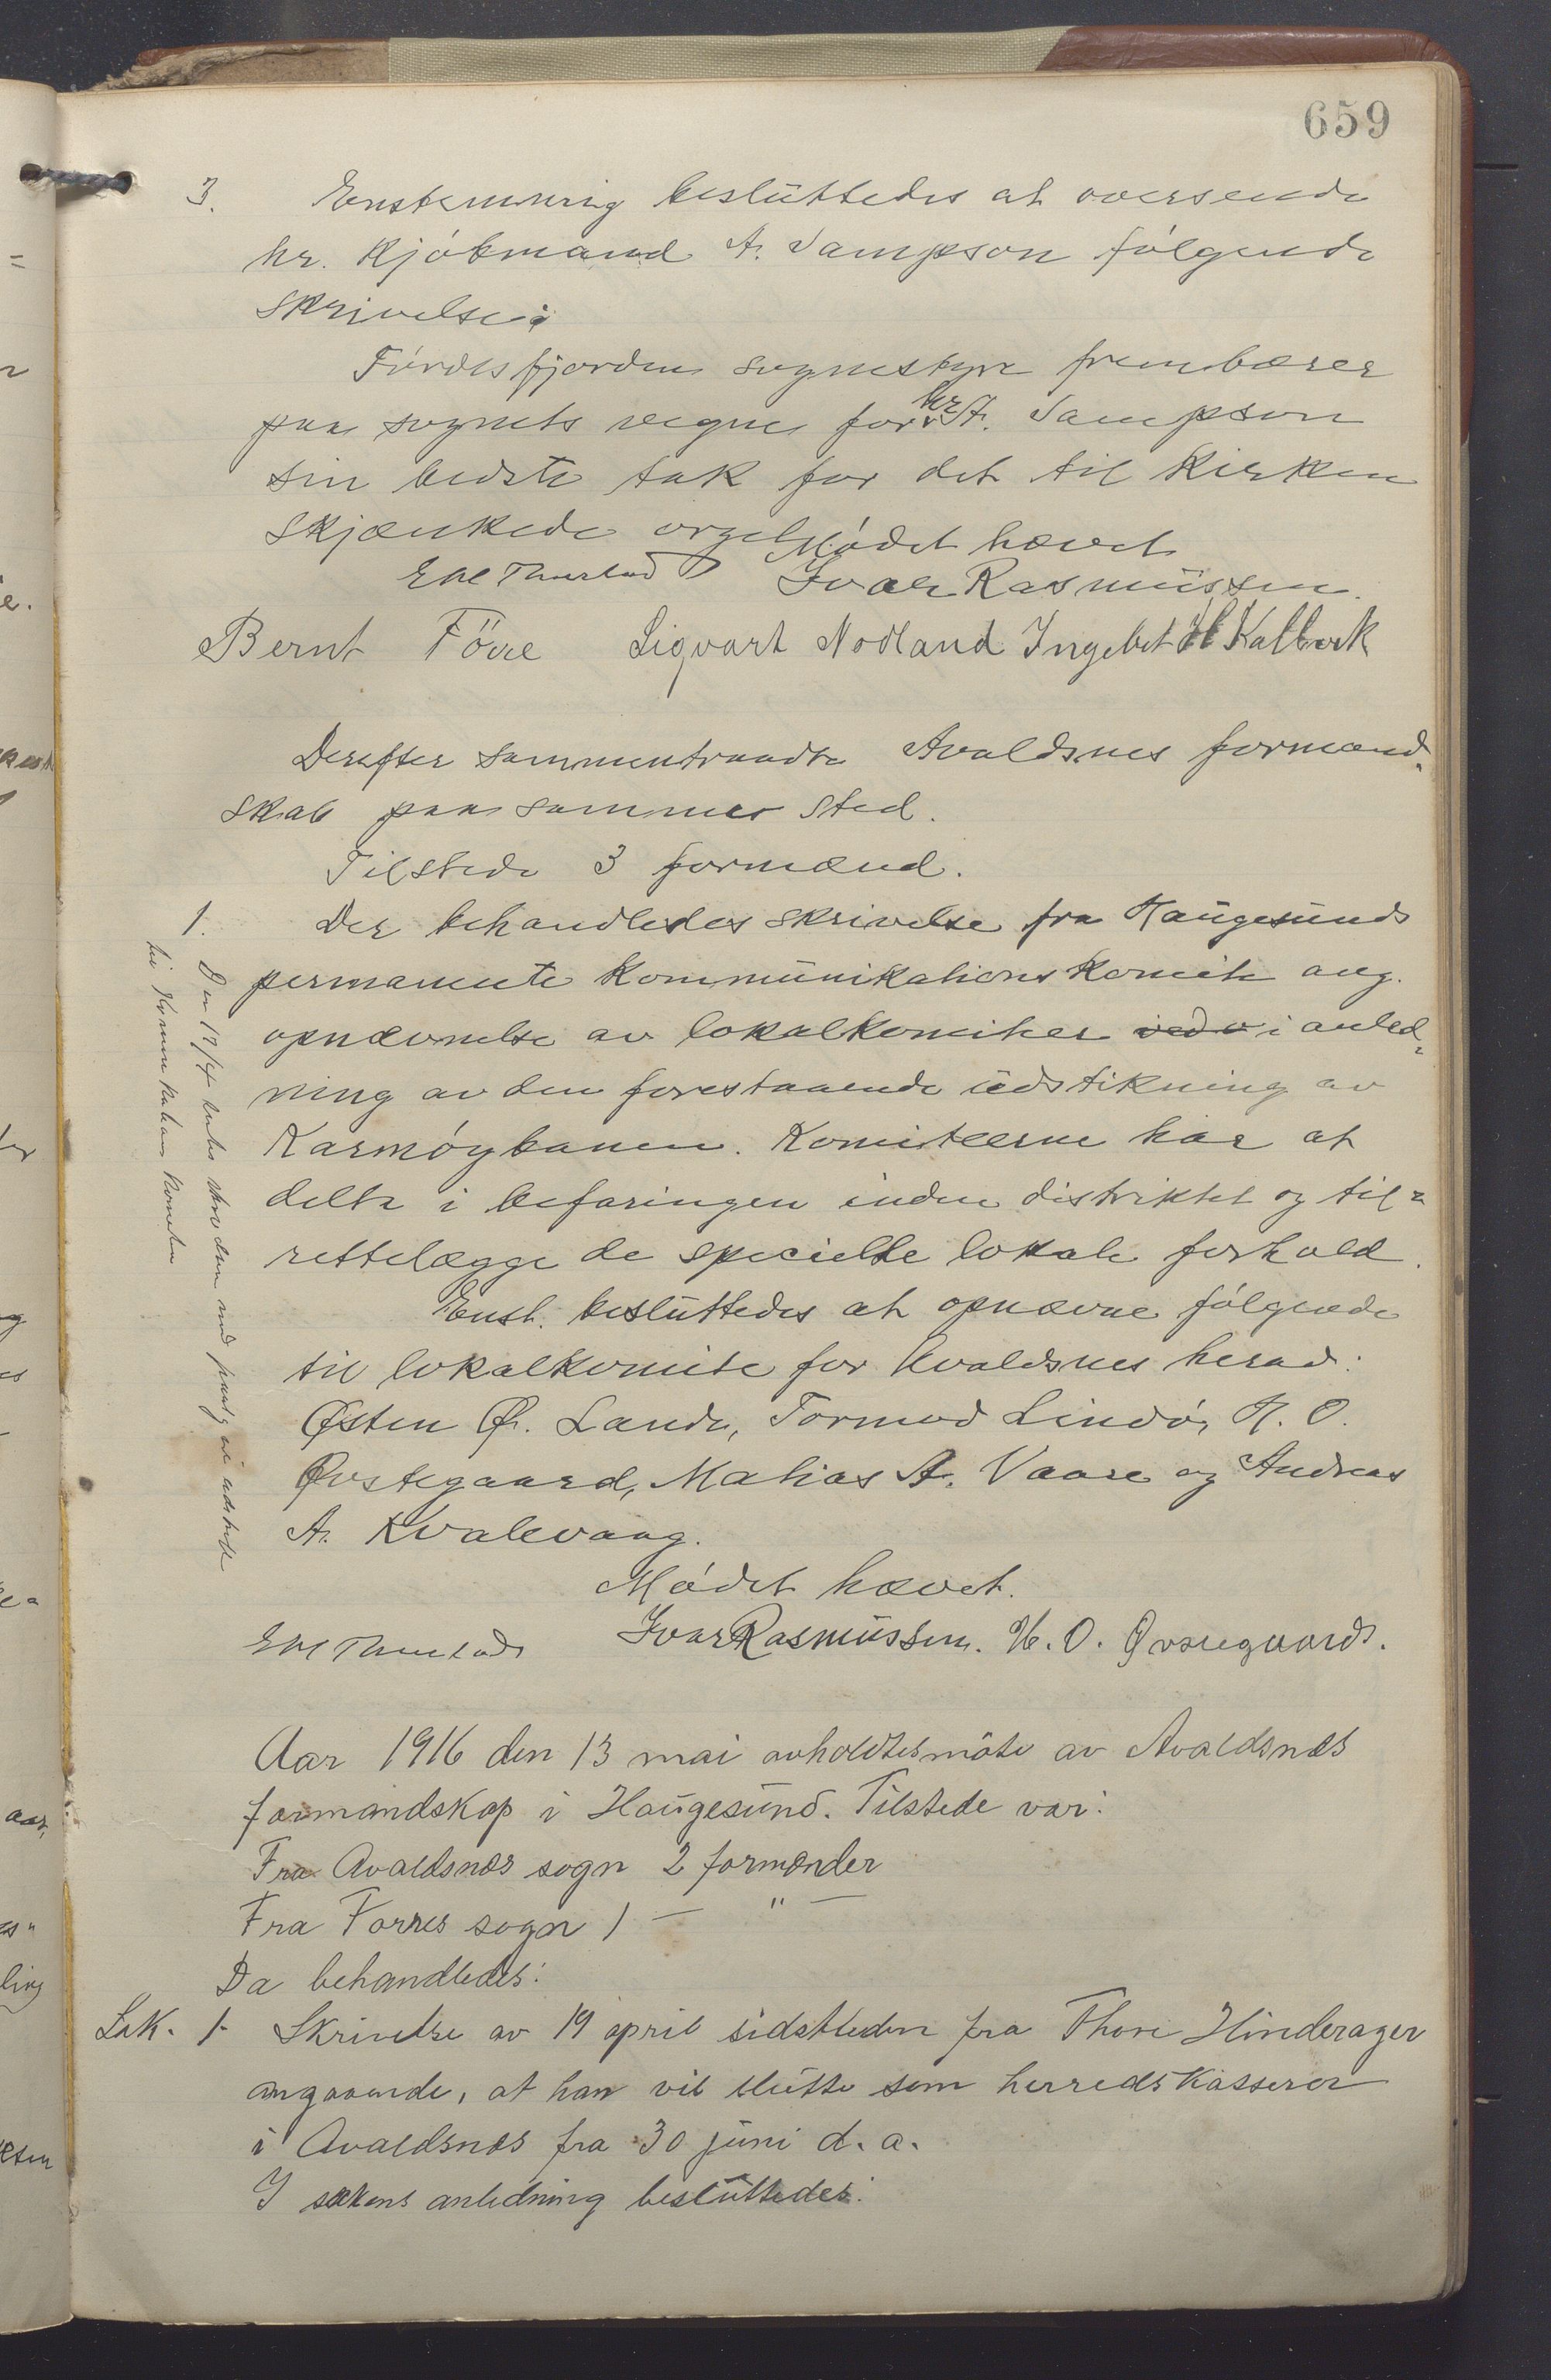 659
3. Enstemmig besluttedes at oversende
hr. Kjöbmand A. Sampson fölgende
skrivelse:
Fördesfjorden sognestyre frembærer
paa sognets vegne for hr A. Sampson
sin bedste tak for det til Kirken
skjænkede orgel. Mödet hævet
Ivar Rasmussen.
Bernt Förre Sigvart Nodland Ingebrt H Kallevik
Derefter sammentraadte Avaldsnes formand-
skab paa sammes sted.
Tilstede 3 formænd.
1. Der behandledes skrivelse fra Haugesunds
permanente Kommunikationskomite ang.
opnævnelse av lokalkomiteer i anled-
ning av den forestaaende udstikning av
Karmöybanen. Komiteerne har at
delta i befaringen inden distriktet og til-
rettelægge de specielle lokale forhold.
Enst. besluttedes at opnævne fölgende
til lokalkomite for Avaldsnes herad:
Østen Ø. Lande, Tormod Lindö, H. O.
Øvstegaard, Matias A. Vaare og Andreas
A. Kvalevaag.
Mödet hævet.
Ivar Rasmussen. H. O. Øvstegaard.
Aar 1916 den 13 mai avholdtes möte av Avaldsnes
formandskap i Haugesund. Tilstede var:
Fra Avaldsnes sogn 2 formænder
Fra Torres sogn 1 — " —
Da behandledes:
Sak. 1. Skrivelse av 19 april sidstleden fra Thore Hinderager
angaaende, at han vil slutte som herredskasserer
i Avaldsnes fra 30 juni d. a.
I sakens anledning besluttedes: